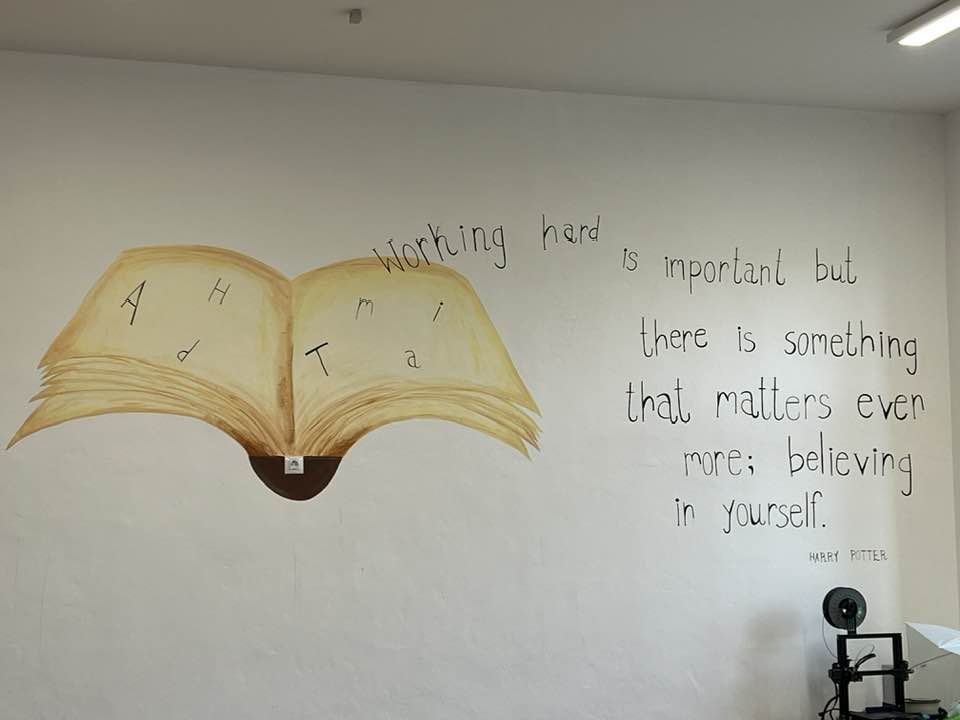 A H
d
m i
T a
Working hard is important but
there is something
that matters ever
more; believing
in yourself.
HARRY POTTER